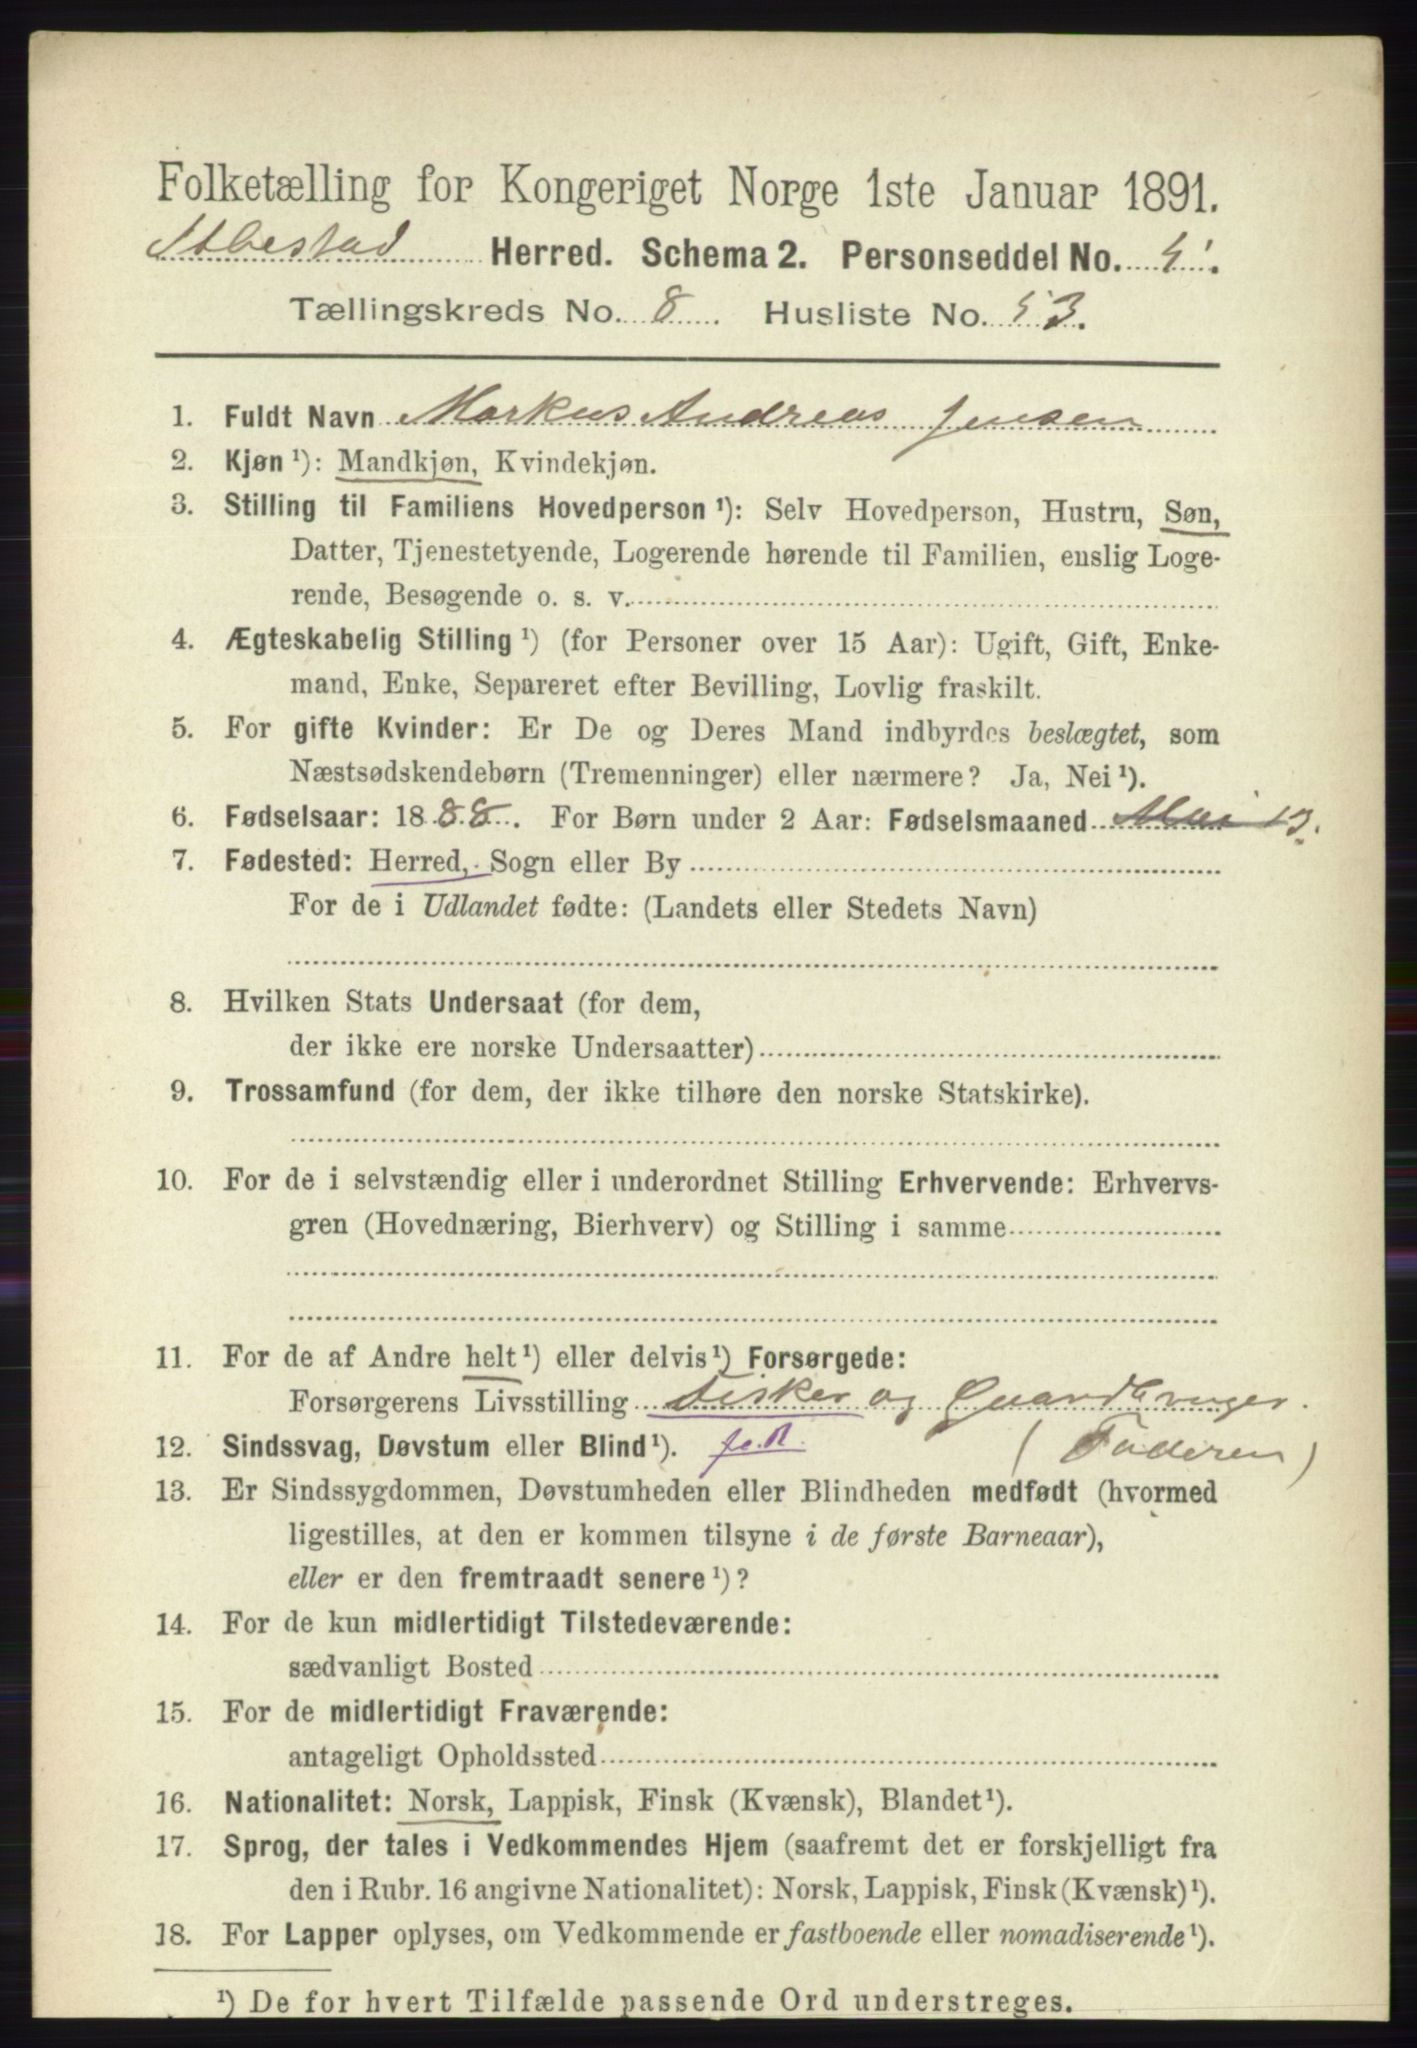 Folketælling for Kongeriget Norge 1ste Januar 1891.
Ibbestad Herred. Schema 2. Personseddel No. 5.
Tællingskreds No. 8. Husliste No. 53.
1. Fuldt Navn Markus Andreas Jensen
2. Kjøn ¹): Mandkjøn, Kvindekjøn.
3. Stilling til Familiens Hovedperson ¹): Selv Hovedperson, Hustru, Søn,
Datter, Tjenestetyende, Logerende hørende til Familien, enslig Loge-
rende, Besøgende o. s. v.
4. Ægteskabelig Stilling ¹) (for Personer over 15 Aar): Ugift, Gift, Enke-
mand, Enke, Separeret efter Bevilling, Lovlig fraskilt.
5. For gifte Kvinder: Er De og Deres Mand indbyrdes beslægtet, som
Næstsødskendebørn (Tremenninger) eller nærmere? Ja, Nei ¹).
6. Fødselsaar: 1888. For Børn under 2 Aar: Fødselsmaaned Mai 13.
7. Fødested: Herred, Sogn eller By
For de i Udlandet fødte: (Landets eller Stedets Navn)
8. Hvilken Stats Undersaat (for dem,
der ikke ere norske Undersaatter)
9. Trossamfund (for dem, der ikke tilhøre den norske Statskirke).
10. For de i selvstændig eller i underordnet Stilling Erhvervende: Erhvervs-
gren (Hovednæring, Bierhverv) og Stilling i samme
11. For de af Andre helt ¹) eller delvis ¹) Forsørgede:
Forsørgerens Livsstilling Fisker og Gaardbruger.
12. Sindssvag, Døvstum eller Blind ¹). (Faderen)
13. Er Sindssygdommen, Døvstumheden eller Blindheden medfødt (hvormed
ligestilles, at den er kommen tilsyne i de første Barneaar),
eller er den fremtraadt senere ¹)?
14. For de kun midlertidigt Tilstedeværende:
sædvanligt Bosted
15. For de midlertidigt Fraværende:
antageligt Opholdssted
16. Nationalitet: Norsk, Lappisk, Finsk (Kvænsk), Blandet ¹).
17. Sprog, der tales i Vedkommendes Hjem (saafremt det er forskjelligt fra
den i Rubr. 16 angivne Nationalitet): Norsk, Lappisk, Finsk (Kvænsk) ¹).
18. For Lapper oplyses, om Vedkommende er fastboende eller nomadiserende ¹).
¹) De for hvert Tilfælde passende Ord understreges.